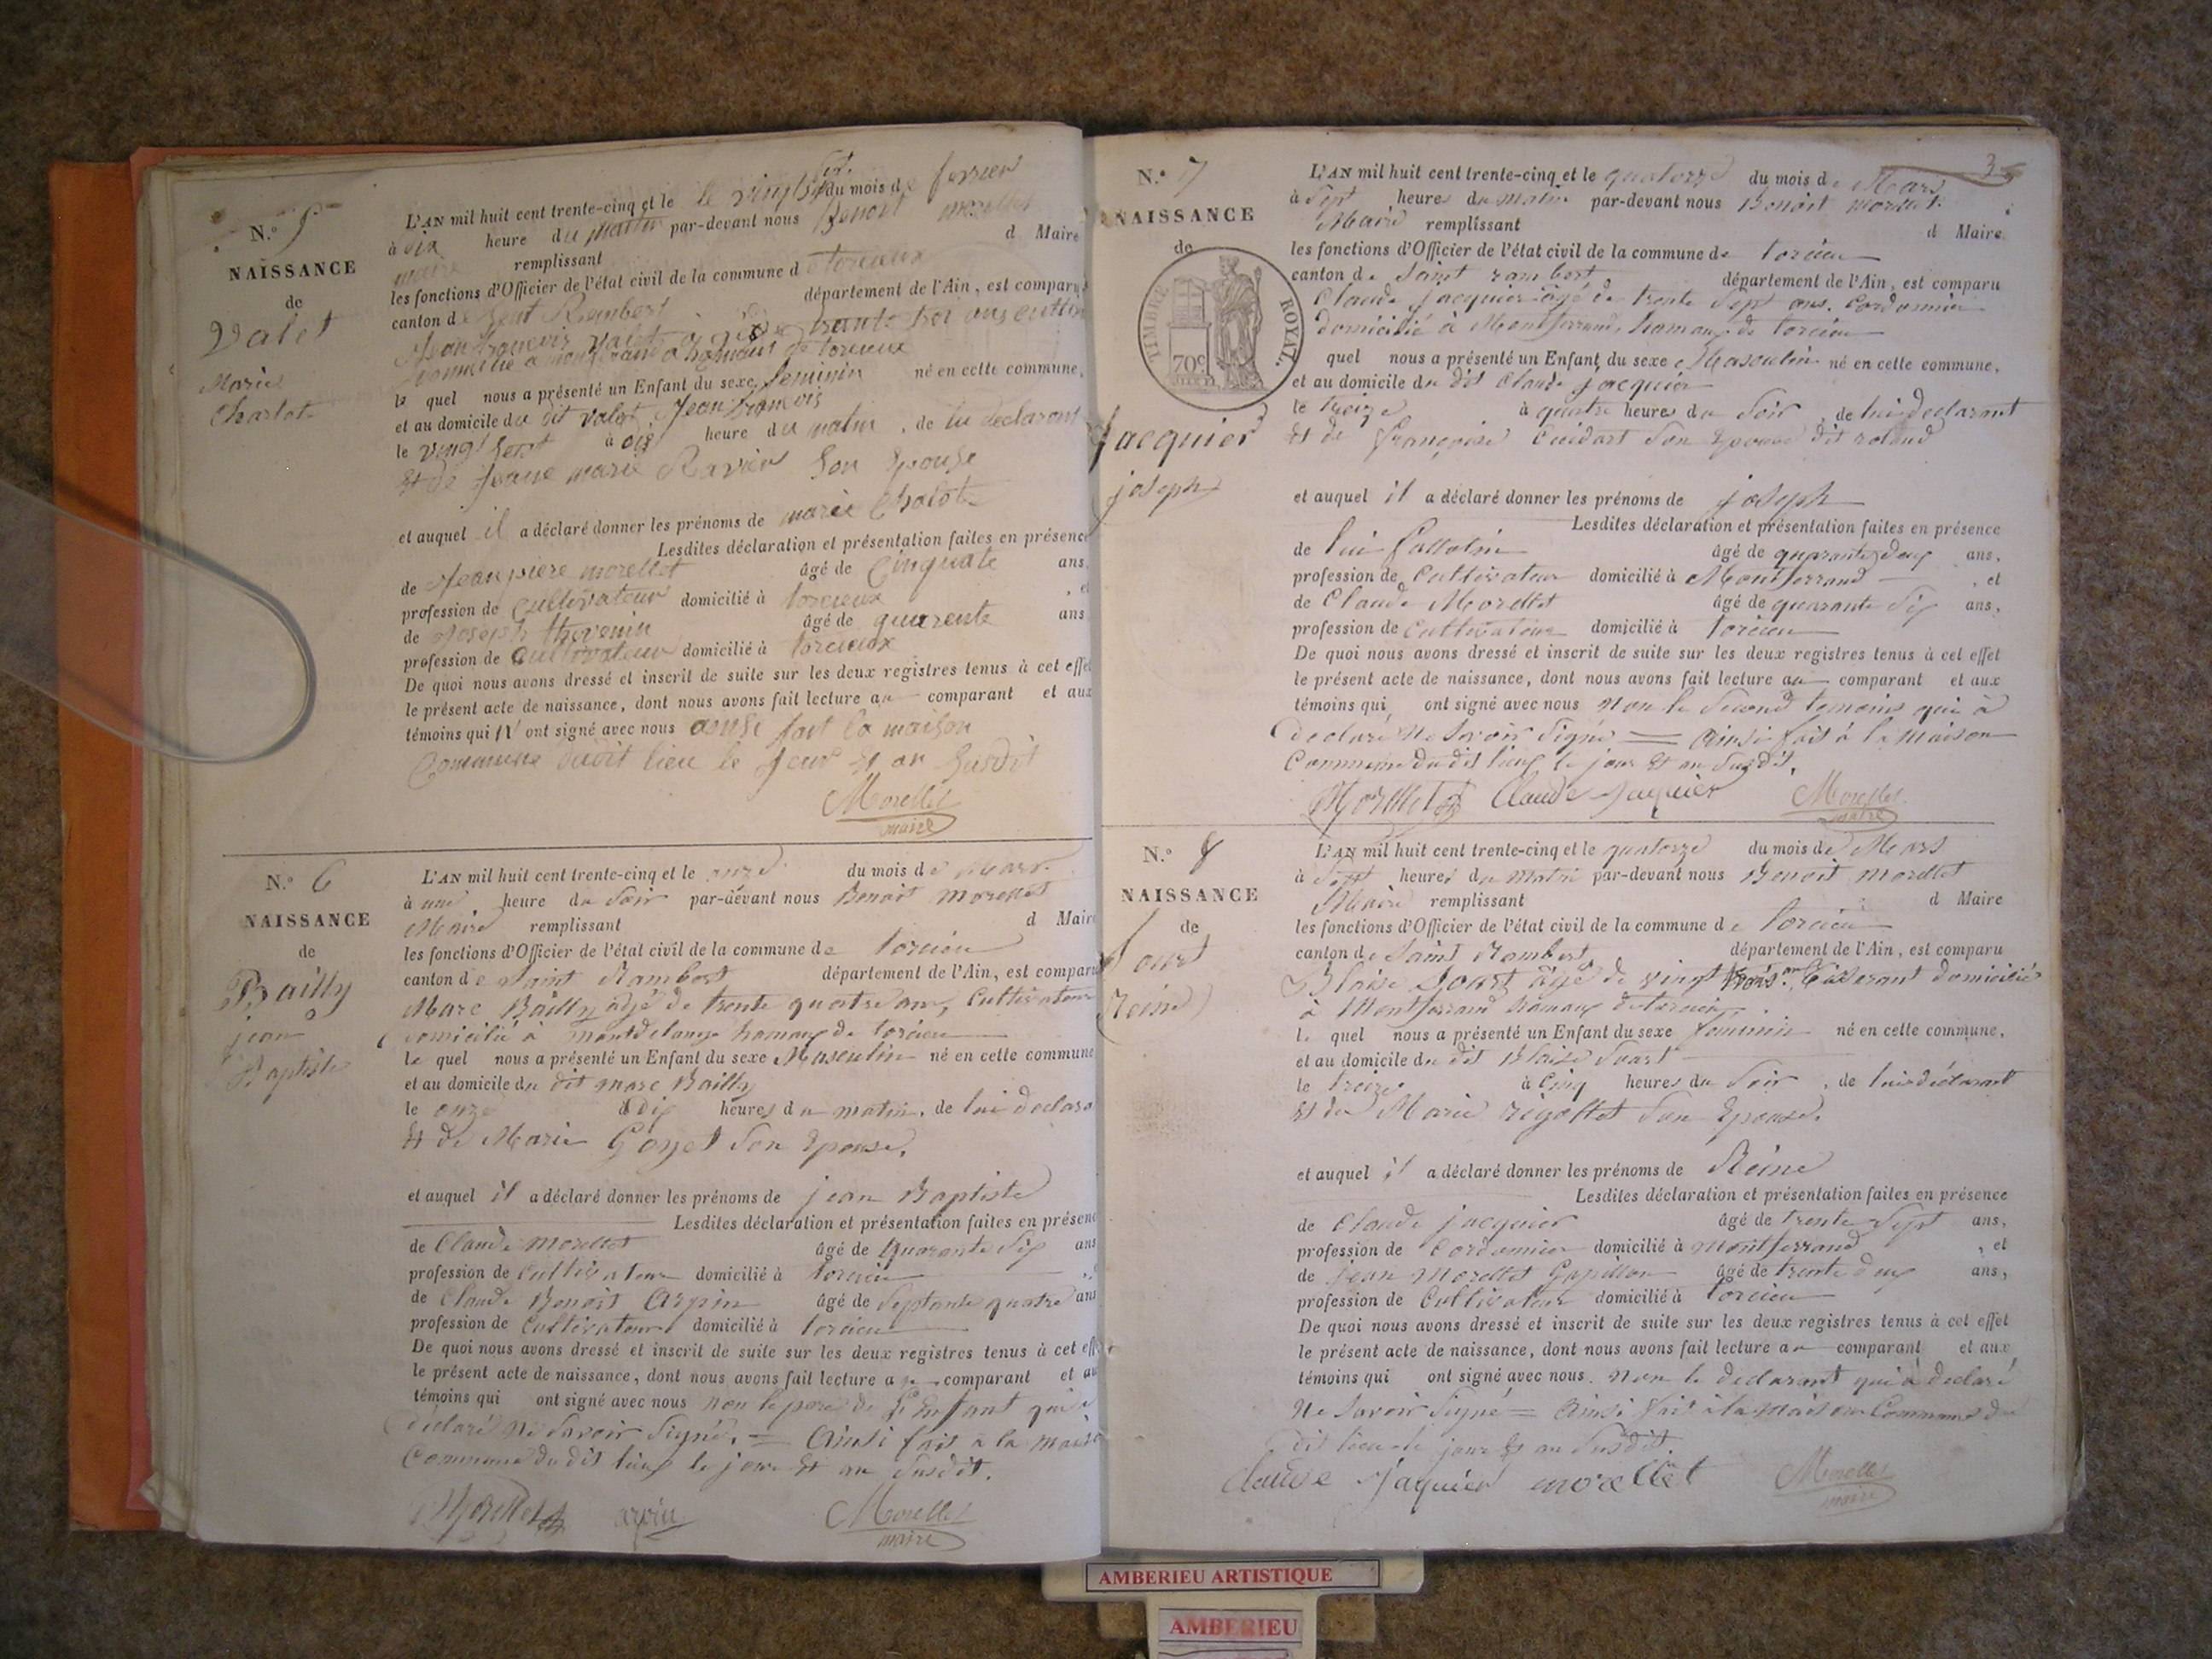 N.º 5
NAISSANCE
de
Valet
Marie
Charlot
L'AN mil huit cent trente-cinq et le le vingt sept du mois de fevrier
à dix heure du matin par-devant nous Benoit morellet
maire remplissant d Maire
les fonctions d'Officier de l'état civil de la commune d torcieux
canton de sent Rembert département de l'Ain, est comparu
Jean francois valet
domicilie a torcieux
le quel nous a présenté un Enfant du sexe feminin né en cette commune,
et au domicile du dit valet Jean francois
le vingt sept à dix heure du matin, de lui declarant
Et de Jeane marie Ravier son Epouse
et auquel il a déclaré donner les prénoms de marie Chalot
Lesdites déclaration et présentation faites en présence
de Jean piere morellet âgé de Cinquate ans,
profession de Cultivateur domicilié à torcieux, et
de Joseph thevenin âgé de quarente ans
profession de Cultivateur domicilié à torcieux
De quoi nous avons dressé et inscrit de suite sur les deux registres tenus à cet effet
le présent acte de naissance, dont nous avons fait lecture au comparant et aux
témoins qui ont signé avec nous ainsi fait la maison
Commune dudit lieu le jour Et an susdit
Morellet
maire
N.º 6
NAISSANCE
de
Bailly
jean
Baptiste
L'AN mil huit cent trente-cinq et le onze du mois de Mars
à une heure du Soir par-devant nous Benoit Morellet
Maire remplissant d Maire
les fonctions d'Officier de l'état civil de la commune de torcieu
canton de Saint Rambert département de l'Ain, est comparu
Marc Bailly agé de trente quatre ans, Cultivateur
domicilié à hamaux de torcieu
le quel nous a présenté un Enfant du sexe Masculin né en cette commune
et au domicile du dit marc Bailly
le onze à dix heures du matin, de lui declara
Et de Marie Goyet Son Epouse,
et auquel il a déclaré donner les prénoms de jean Baptiste
Lesdites déclaration et présentation faites en présenc
de Claude Morellet âgé de quarante Six ans
profession de Cultivateur domicilié à torcieu
de Claude Benoit Arpin âgé de Septante quatre ans
profession de Cultivateur domicilié à torcieu
De quoi nous avons dressé et inscrit de suite sur les deux registres tenus à cet eff
le présent acte de naissance, dont nous avons fait lecture au comparant et au
témoins qui ont signé avec nous non le pere de L'Enfant qui à
declaré Ne Savoir Signé, = Ainsi fait à la Maiso
Commune du dit lieux le jour Et an Susdit.
Morellet arpin Morellet
maire
3
N.º 7
NAISSANCE
de
TIMBRE ROYAL.
70c
Jacquier
joseph
L'AN mil huit cent trente-cinq et le quatorze du mois de Mars
à Sept heures du matin par-devant nous Benoit Morellet
Maire remplissant d Maire
les fonctions d'Officier de l'état civil de la commune de torcieu
canton de Saint rambert département de l'Ain, est comparu
Claude jacquier agé de trente Sept ans, Cordonnier
domicilié à Montferrand, hamaux de torcieu
quel nous a présenté un Enfant du sexe Masculin né en cette commune,
et au domicile du dit Claude jacquier
le treize à quatre heures du Soir, de lui declarant
Et de Françoise Cuidart Son Epouse dit roland
et auquel il a déclaré donner les prénoms de joseph
Lesdites déclaration et présentation faites en présence
de âgé de quarante deux ans,
profession de Cultivateur domicilié à Montferrand, et
de Claude Morellet âgé de quarante Six ans,
profession de Cultivateur domicilié à torcieu
De quoi nous avons dressé et inscrit de suite sur les deux registres tenus à cet effet
le présent acte de naissance, dont nous avons fait lecture au comparant et aux
témoins qui ont signé avec nous Non le Second temoins qui à
declaré Ne Savoir Signé = Ainsi fait à la Maison
Commune du dit lieux le jour Et an Susdit,
Morellet Claude Jaquier Morellet
maire
N.º 8
NAISSANCE
de
Soart
Reine
L'AN mil huit cent trente-cinq et le quatorze du mois de Mars
à Sept heures du Matin par-devant nous Benoit Morellet
Maire remplissant d Maire
les fonctions d'Officier de l'état civil de la commune de torcieu
canton de Saint Rambert département de l'Ain, est comparu
Blaise Soart agé de vingt trois ans, tisserant domicilié
à Montferrand hamaux de torcieu
le quel nous a présenté un Enfant du sexe feminin né en cette commune,
et au domicile du dit Blaise Soart
le treize à Cinq heures du Soir, de lui déclarant
Et de Marie rigollet Son Epouse.
et auquel il a déclaré donner les prénoms de Reine
Lesdites déclaration et présentation faites en présence
de Claude jacquier âgé de trente Sept ans,
profession de Cordonnier domicilié à Montferrand, et
de jean Morellet Gapillon âgé de trente deux ans,
profession de Cultivateur domicilié à torcieu
De quoi nous avons dressé et inscrit de suite sur les deux registres tenus à cet effet
le présent acte de naissance, dont nous avons fait lecture au comparant et aux
témoins qui ont signé avec nous. Non le declarant qui à declaré
Ne Savoir Signé = Ainsi fait à la Maison Commune du
dit lieu le jour Et an Susdit.
claude Jaquier morellet Morellet
maire
AMBERIEU ARTISTIQUE
AMBERIEU